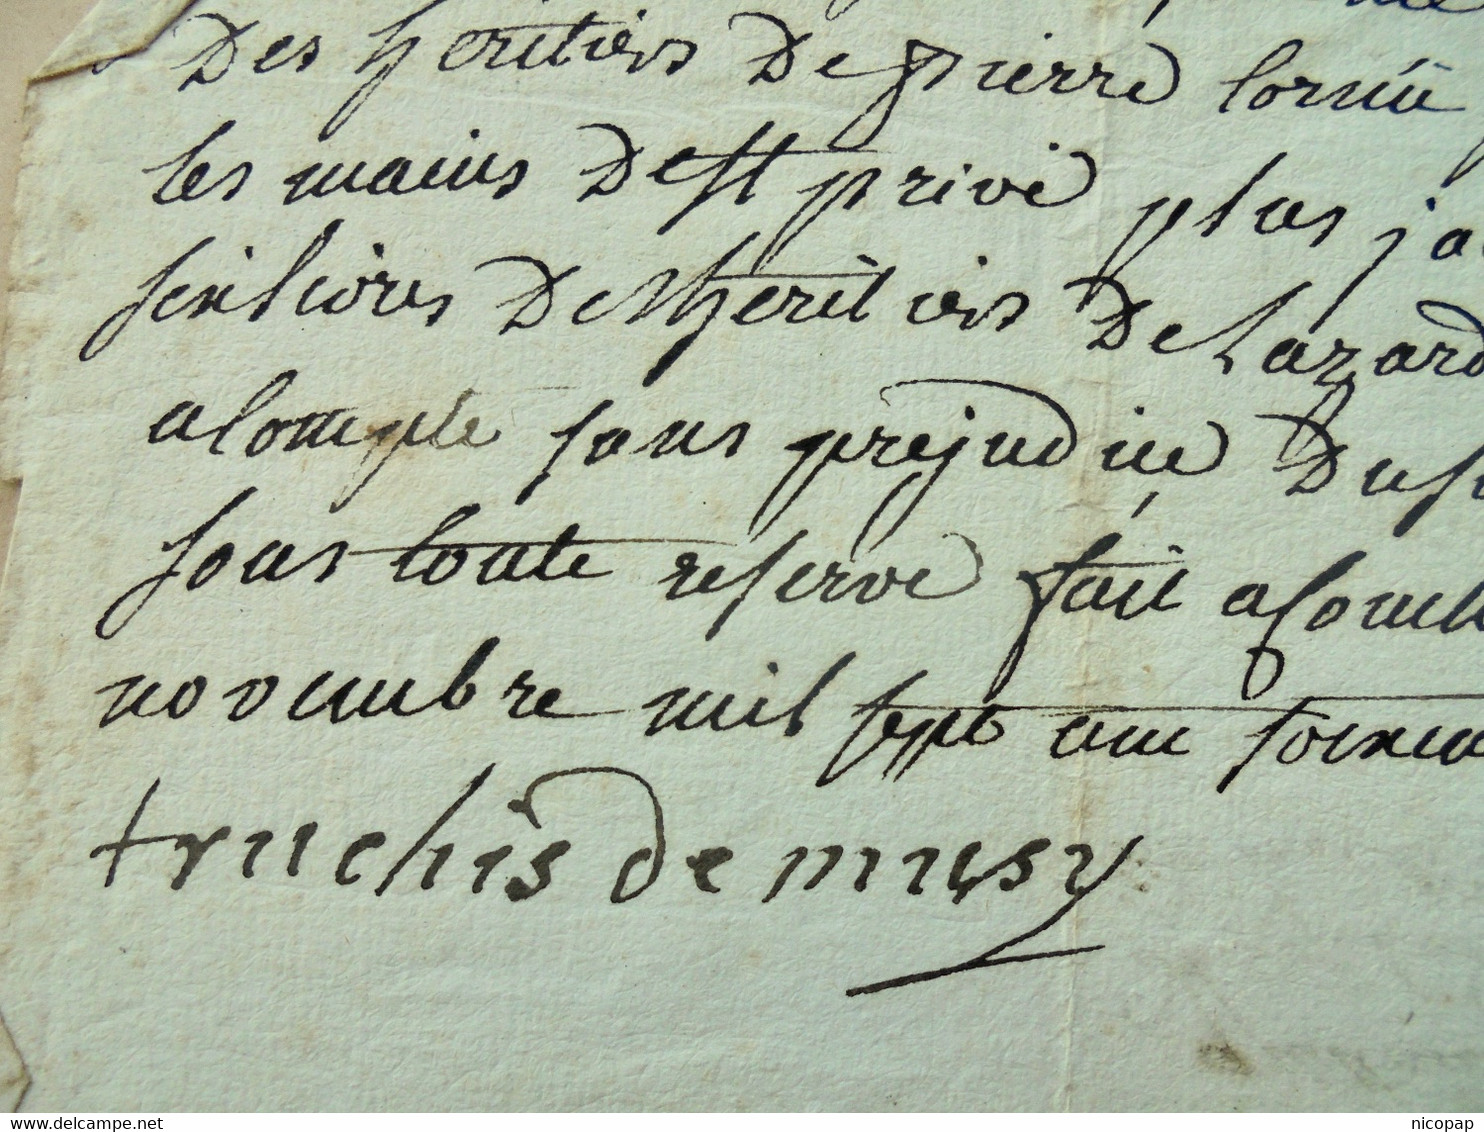 des heritiers de pierre cornü
les mains de st privé plus j'ai
six livres des heritiers de Lazard
a compte sans prejudice du
sous toute reserve fait a
novembre mil sept cent soixa
truchis de musy
delcampe.net
nicopap